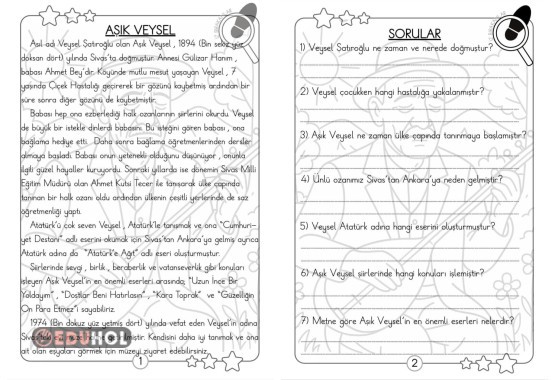 AŞIK VEYSEL
Asıl adı Veysel Şatıroğlu olan Aşık Veysel , 1894 (Bin sekiz yüz
doksan dört) yılında Sivas'ta doğmuştur. Annesi Gülizar Hanım ,
babası Ahmet Bey'dir. Köyünde mutlu mesut yaşayan Veysel , 7
yaşında Çiçek Hastalığı geçirerek bir gözünü kaybetmiş ardından bir
süre sonra diğer gözünü de kaybetmiştir.
Babası hep ona ezberlediği halk ozanlarının şiirlerini okurdu. Veysel
de büyük bir istekle dinlerdi babasını. Bu isteğini gören babası , ona
bağlama hediye etti. Daha sonra bağlama öğretmenlerinden dersler
almaya başladı. Babası onun yetenekli olduğunu düşünüyor , onunla
ilgili güzel hayaller kuruyordu. Sonraki yıllarda ise dönemin Sivas Milli
Eğitim Müdürü olan Ahmet Kutsi Tecer ile tanışarak ülke çapında
tanınan bir halk ozanı oldu ardından ülkenin çeşitli yerlerinde de saz
öğretmenliği yaptı.
Atatürk'ü çok seven Veysel , Atatürk'le tanışmak ve ona "Cumhuri-
yet Destanı" adlı eserini okumak için Sivas'tan Ankara'ya gelmiş ayrıca
Atatürk adına da "Atatürk'e Ağıt" adlı eseri oluşturmuştur.
Şiirlerinde sevgi , birlik , beraberlik ve vatanseverlik gibi konuları
işleyen Aşık Veysel'in en önemli eserleri arasında; "Uzun İnce Bir
Yoldayım" , "Dostlar Beni Hatırlasın" , "Kara Toprak" ve "Güzelliğin
On Para Etmez"i sayabiliriz.
1974 (Bin dokuz yüz yetmiş dört) yılında vefat eden Veysel'in adına
Sivas'ta
Kendisini daha iyi tanımak ve ona
ait olan eşyaları görmek için müzeyi ziyaret edebilirsiniz.
EDUHOL
1
SORULAR
1) Veysel Şatıroğlu ne zaman ve nerede doğmuştur?
2) Veysel çocukken hangi hastalığa yakalanmıştır?
3) Aşık Veysel ne zaman ülke çapında tanınmaya başlamıştır?
4) Ünlü ozanımız Sivas'tan Ankara'ya neden gelmiştir?
5) Veysel Atatürk adına hangi eserini oluşturmuştur?
6) Aşık Veysel şiirlerinde hangi konuları işlemiştir?
7) Metne göre Aşık Veysel'in en önemli eserleri nelerdir?
2